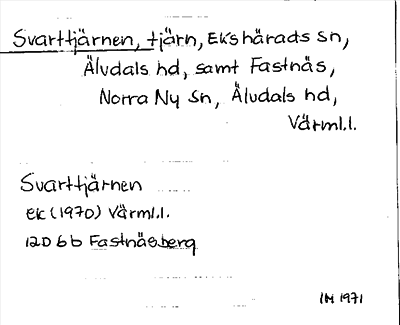 Svarttjärnen, tjärn, Ekshärads sn,
Älvdals hd, samt Fastnäs,
Norra Ny sn, Älvdals hd,
Värml.l.
Svarttjärnen
ek (1970) Värml.l.
12D 6b Fastnäsberg
IM 1971